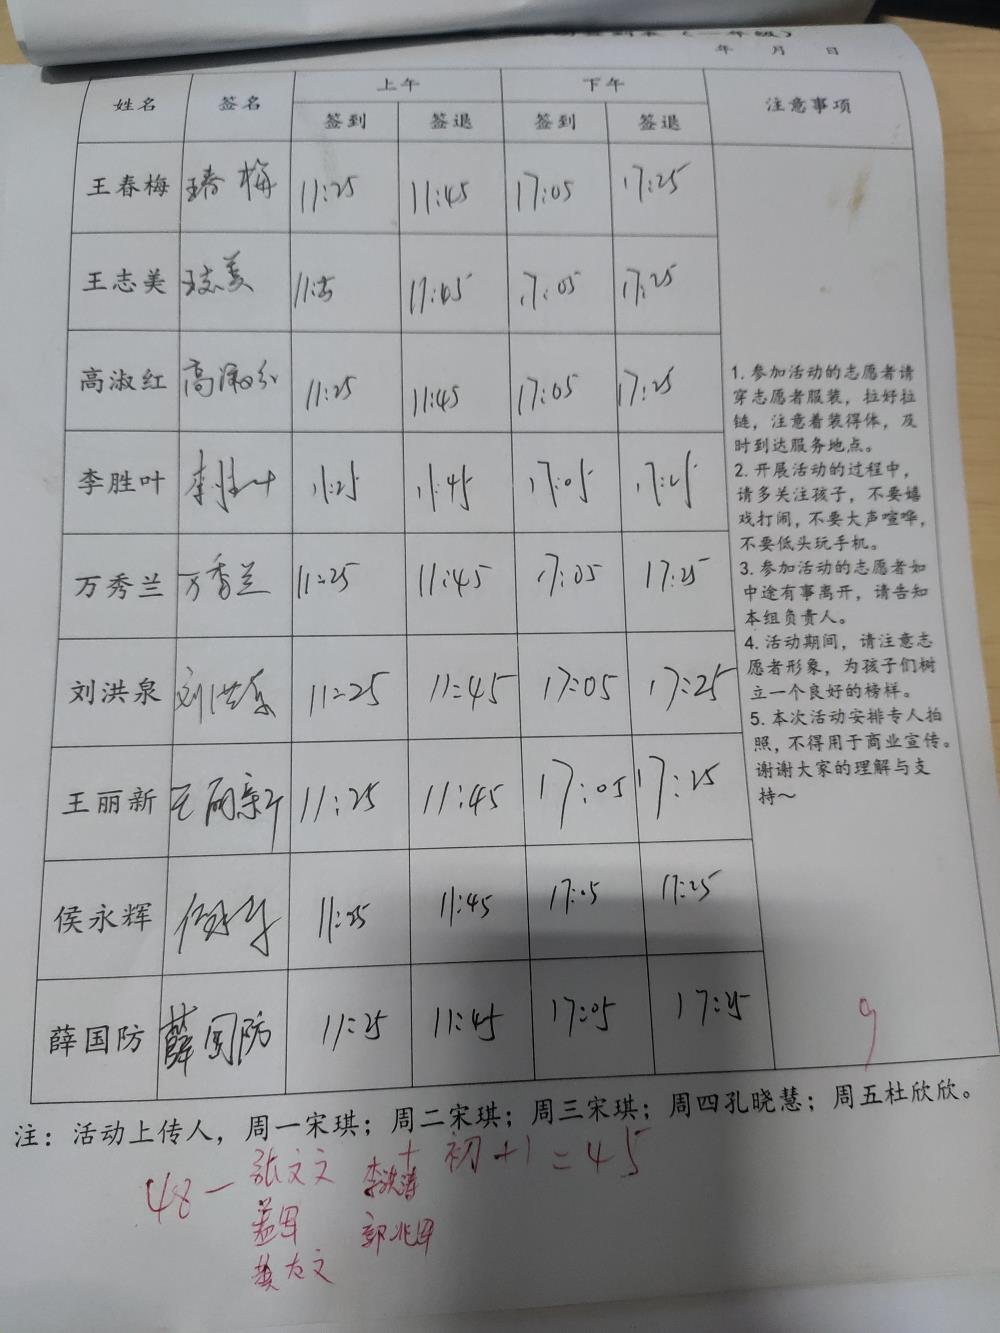 签到表（二年级）
年 月 日
姓名 签名 上午 下午 注意事项
签到 签退 签到 签退
王春梅 王春梅 11:25 11:45 17:05 17:25
王志美 王志美 11:25 11:45 17:05 17:25
高淑红 高淑红 11:25 11:45 17:05 17:25
李胜叶 李胜叶 11:25 11:45 17:05 17:25
万秀兰 万秀兰 11:25 11:45 17:05 17:25
刘洪泉 刘洪泉 11:25 11:45 17:05 17:25
王丽新 王丽新 11:25 11:45 17:05 17:25
侯永辉 侯永辉 11:25 11:45 17:05 17:25
薛国防 薛国防 11:25 11:45 17:05 17:25
1. 参加活动的志愿者请
穿志愿者服装，拉好拉
链，注意着装得体，及
时到达服务地点。
2. 开展活动的过程中，
请多关注孩子，不要嬉
戏打闹，不要大声喧哗，
不要低头玩手机。
3. 参加活动的志愿者如
中途有事离开，请告知
本组负责人。
4. 活动期间，请注意志
愿者形象，为孩子们树
立一个良好的榜样。
5. 本次活动安排专人拍
照，不得用于商业宣传。
谢谢大家的理解与支
持～
9
注：活动上传人，周一宋琪；周二宋琪；周三宋琪；周四孔晓慧；周五杜欣欣。
48 — 张文文 李洪涛 + 初 +1 = 45
孟军 郭兆军
黄友文